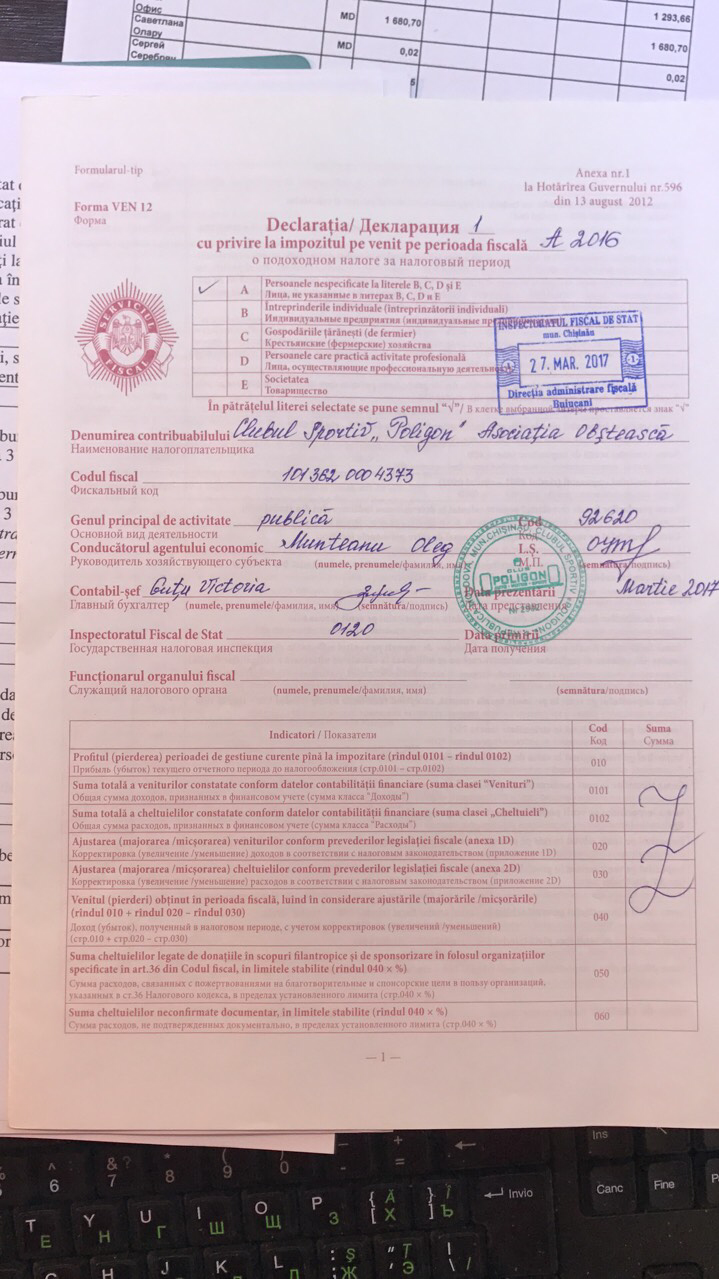 Офис
Саветлана
Олару
Сергей
Серебрян
MD
1 680,70
1 293,66
MD
0,02
1 680,70
0,02
Formularul-tip
Anexa nr.1
la Hotărîrea Guvernului nr.596
din 13 august 2012
Forma VEN 12
Форма
Declarația/ Декларация 1
cu privire la impozitul pe venit pe perioada fiscală A 2016
о подоходном налоге за налоговый период
SERVICIUL FISCAL
✓ A Persoanele nespecificate la literele B, C, D și E
Лица, не указанные в литерах B, C, D и E
B Întreprinderile individuale (întreprinzătorii individuali)
Индивидуальные предприятия (индивидуальные
C Gospodăriile țărănești (de fermier)
Крестьянские (фермерские) хозяйства
D Persoanele care practică activitate profesională
Лица, осуществляющие профессиональную
E Societatea
Товарищество
INSPECTORATUL FISCAL DE STAT
mun. Chișinău
27. MAR. 2017
Direcția administrare fiscală
Buiucani
În pătrățelul literei selectate se pune semnul "√"/ В клетке знак "√"
Denumirea contribuabilului Clubul Sportiv „Poligon" Asociația Obștească
Наименование налогоплательщика
Codul fiscal 1013620004373
Фискальный код
Genul principal de activitate publică Cod 92620
Основной вид деятельности Код
Conducătorul agentului economic Munteanu Oleg L.Ș.
Руководитель хозяйствующего субъекта (numele, prenumele/фамилия, имя) М.П. (semnătura/подпись)
CLUB
POLIGON
Contabil-șef Guțu Victoria Data prezentării Martie 2017
Главный бухгалтер (numele, prenumele/фамилия, имя) (semnătura/подпись) Дата представления
Inspectoratul Fiscal de Stat 0120 Data primirii
Государственная налоговая инспекция Дата получения
Funcționarul organului fiscal
Служащий налогового органа (numele, prenumele/фамилия, имя) (semnătura/подпись)
Indicatori / Показатели Cod Suma
Код Сумма
Profitul (pierderea) perioadei de gestiune curente pînă la impozitare (rîndul 0101 – rîndul 0102) 010
Прибыль (убыток) текущего отчетного периода до налогообложения (стр.0101 – стр.0102)
Suma totală a veniturilor constatate conform datelor contabilității financiare (suma clasei "Venituri") 0101
Общая сумма доходов, признанных в финансовом учете (сумма класса "Доходы")
Suma totală a cheltuielilor constatate conform datelor contabilității financiare (suma clasei „Cheltuieli") 0102
Общая сумма расходов, признанных в финансовом учете (сумма класса "Расходы")
Ajustarea (majorarea /micșorarea) veniturilor conform prevederilor legislației fiscale (anexa 1D) 020
Корректировка (увеличение /уменьшение) доходов в соответствии с налоговым законодательством (приложение 1D)
Ajustarea (majorarea /micșorarea) cheltuielilor conform prevederilor legislației fiscale (anexa 2D) 030
Корректировка (увеличение /уменьшение) расходов в соответствии с налоговым законодательством (приложение 2D)
Venitul (pierderi) obținut în perioada fiscală, luînd în considerare ajustările (majorările /micșorările)
(rîndul 010 + rîndul 020 – rîndul 030) 040
Доход (убыток), полученный в налоговом периоде, с учетом корректировок (увеличений /уменьшений)
(стр.010 + стр.020 – стр.030)
Suma cheltuielilor legate de donațiile în scopuri filantropice și de sponsorizare în folosul organizațiilor
specificate în art.36 din Codul fiscal, în limitele stabilite (rîndul 040 × %) 050
Сумма расходов, связанных с пожертвованиями на благотворительные и спонсорские цели в пользу организаций,
указанных в ст.36 Налогового кодекса, в пределах установленного лимита (стр.040 × %)
Suma cheltuielilor neconfirmate documentar, în limitele stabilite (rîndul 040 × %) 060
Сумма расходов, не подтвержденных документально, в пределах установленного лимита (стр.040 × %)
— 1 —
Ins
^ 6 & 7 ? * 8 ( 9 ) 0 - + =
T Е Y Н U Г I Ш O Щ P З { [ Ă Х } ] Î Ъ Invio Canc Fine
H J K L